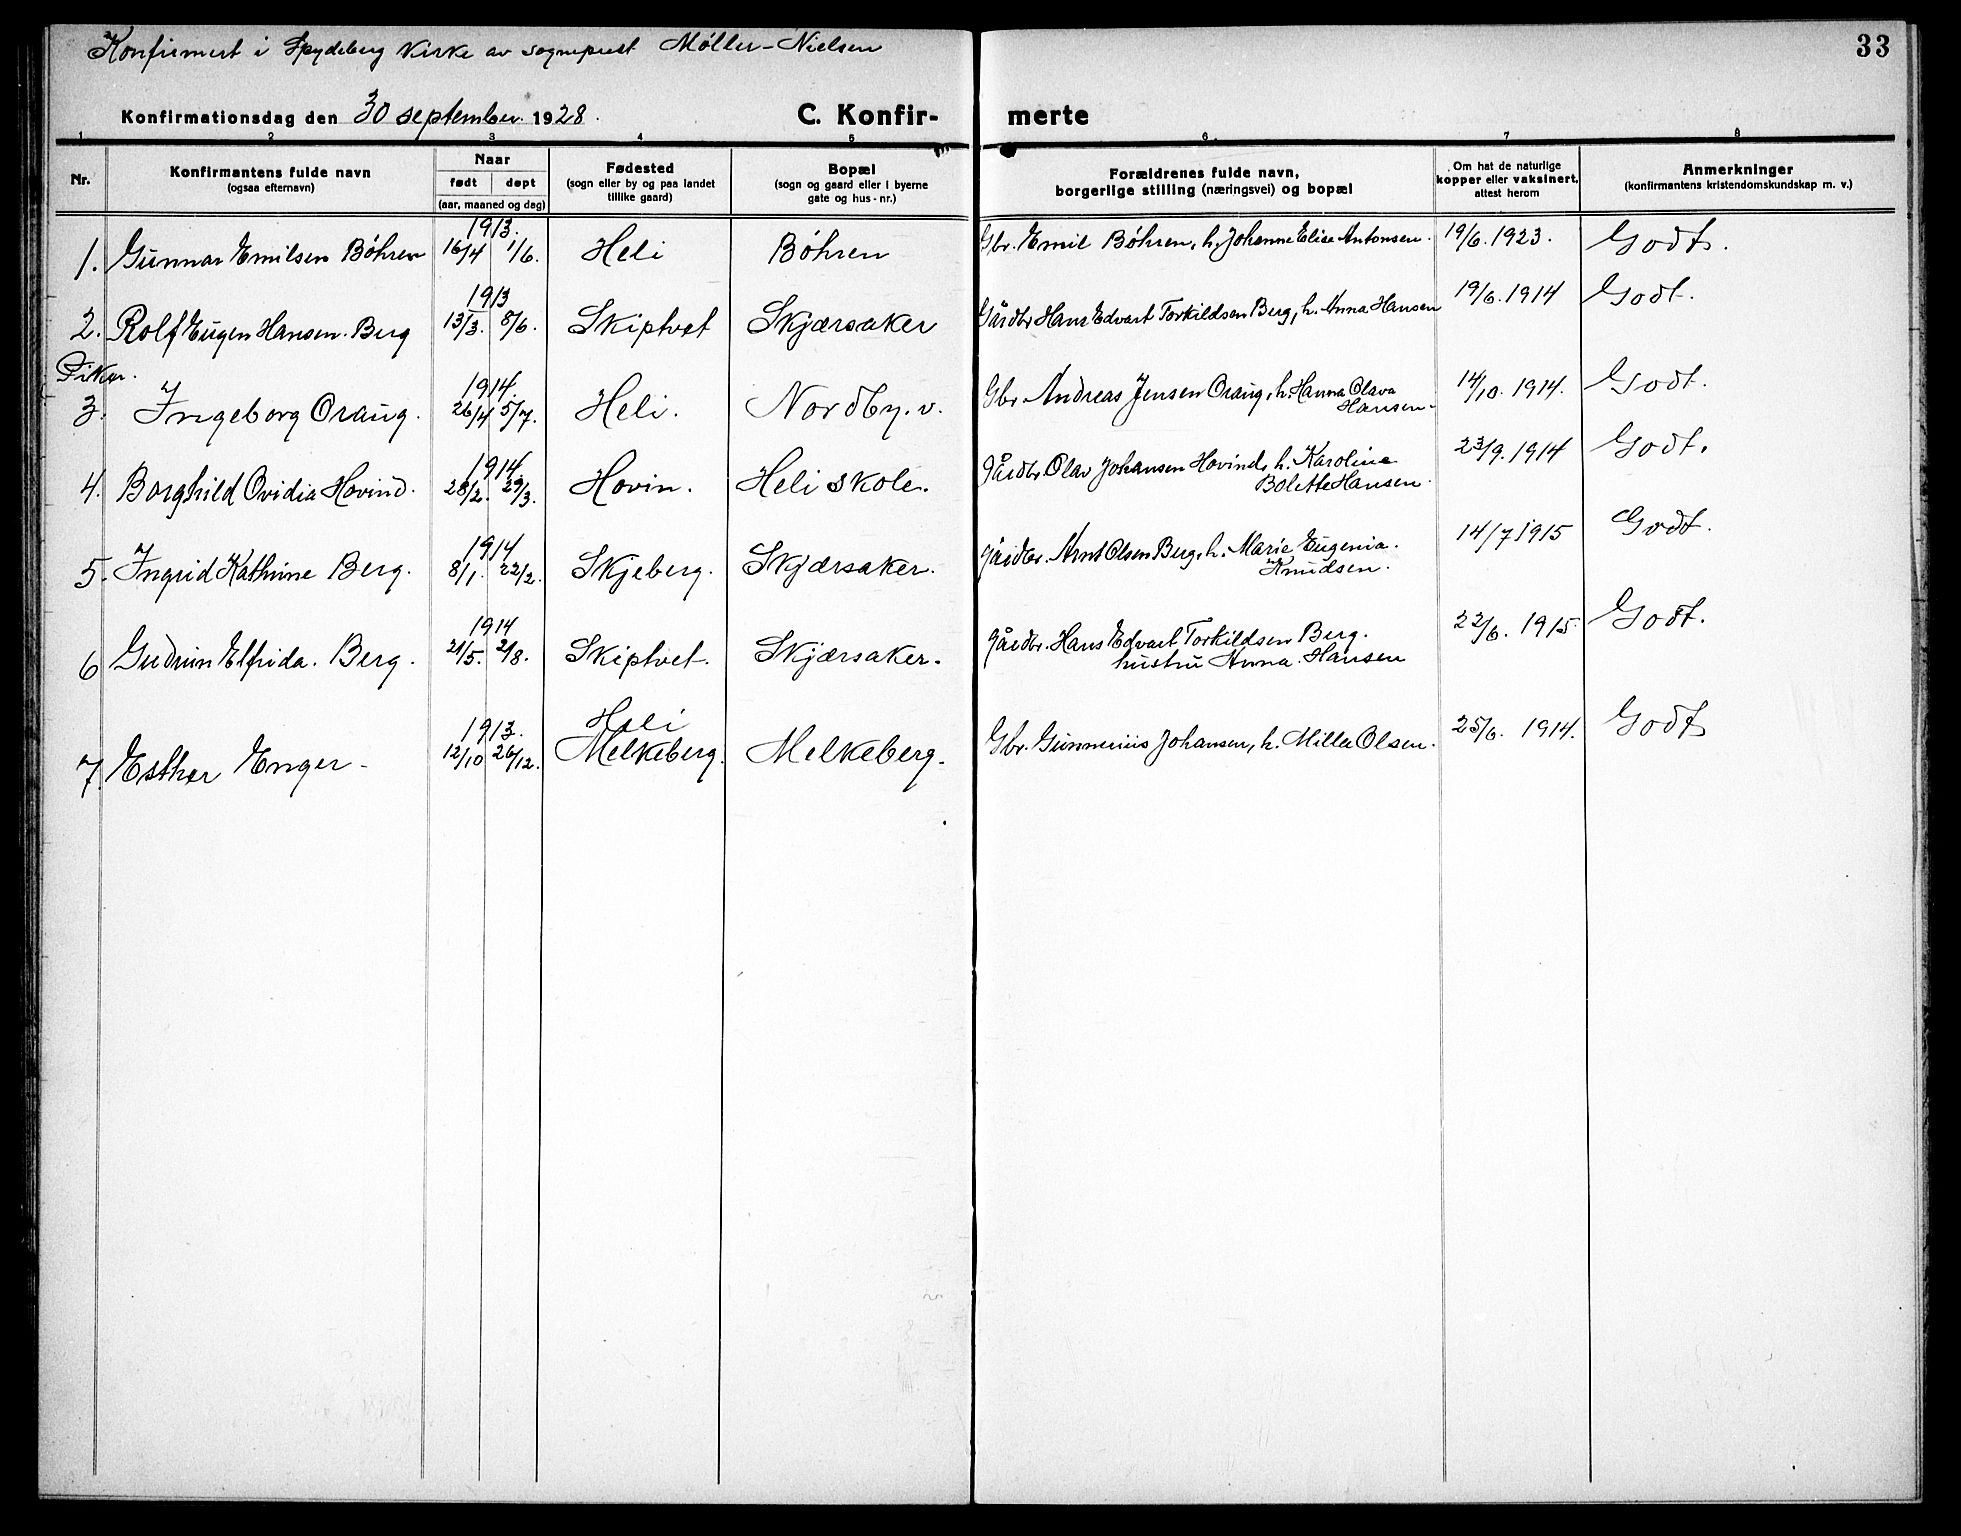 Konfirmert i Spydeberg Kirke av sogneprest Møller-Nielsen
33
Konfirmationsdag den 30 september 1928. C. Konfir- merte
1 2 3 4 5 6 7 8
Nr. Konfirmantens fulde navn (ogsaa efternavn) Naar født døpt (aar, maaned og dag) Fødested (sogn eller by og paa landet tillike gaard) Bopæl (sogn og gaard eller i byerne gate og hus-nr.) Forældrenes fulde navn, borgerlige stilling (næringsvei) og bopæl Om hat de naturlige kopper eller vaksinert, attest herom Anmerkninger (konfirmantens kristendomskundskap m. v.)
1913.
1. Gunnar Emilsen Bøhren 16/4 1/6. Heli Bøhren Gbr. Emil Bøhren, h. Johanne Elise Antonsen. 19/6. 1923. Godt.
1913
2. Rolf Eugen Hansen. Berg 13/3. 8/6. Skiptvet Skjærsaker Gårdbr Hans Edvart Torkildsen Berg, h. Anna Hansen 19/6. 1914 Godt.
Piker.
1914.
3. Ingeborg Oraug. 26/4 5/7. Heli. Nordby. v. Gbr. Andreas Jensen Oraug, h. Hanna Olava 14/10. 1914. Godt.
Hansen-
1914.
4. Borghild Ovidia Hovind. 28/2. 29/3. Hovin. Heli skole. gårdbr. Olav Johansen Hovind, h. Karoline 23/9. 1914 Godt.
Bolette Hansen.
1914
5. Ingrid Kathrine Berg. 8/1. 22/2. Skjeberg. Skjærsaker. gårdbr. Arnt Olsen Berg, h. Marie Eugenia. 14/7 1915 Godt.
Knudsen.
1914
6 Gudrun Elfrida. Berg. 21/5. 2/8. Skiptvet. Skjærsaker. gårdbr. Hans Edvart Torkildsen Berg. 22/6. 1915. Godt.
hustru Anna. Hansen
1913. Heli
7. Esther Enger- 12/10 26/12. Melkeberg. Melkeberg. Gbr. Gunnerius Johansen, h. Milla Olsen. 25/6. 1914. Godt